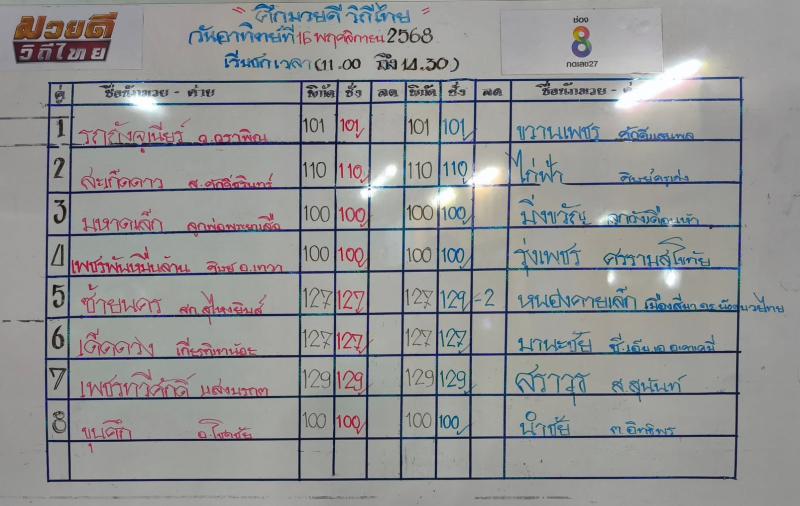 มวยดี
วิถีไทย
"ศึกมวยดี วิถีไทย"
วันอาทิตย์ที่ 16 พฤศจิกายน 2568
เริ่มชกเวลา (11.00 ถึง 14.30)
ช่อง
8
กดเลข27
คู่ ชื่อนักมวย - ค่าย พิกัด ชั่ง ลด พิกัด ชั่ง ลด ชื่อนักมวย - ค่าย
1 รถถังจูเนียร์ อ.วราพิณ 101 101 101 101 ขวานเพชร ศักดิ์แสนพล
2 สะเก็ดดาว ส.ศักดิ์ศรินทร์ 110 110 110 110 ไก่ฟ้า ศิษย์ครูเก่ง
3 มหาดเล็ก ลูกพ่อพระยาเสือ 100 100 100 100 มิ่งขวัญ
4 เพชรพันหมื่นล้าน ศิษย์ อ.เทวา 100 100 100 100 รุ่งเพชร ศรรามสุโขทัย
5 ซ้ายนคร 127 127 127 129 -2 หนองคายเล็ก
6 เด็ดดวง เกียรติเทาน้อย 127 127 127 127 มานะชัย
7 เพชรทวีศักดิ์ แสงมรกต 129 129 129 129 สราวุธ ส.สุนันท์
8 ขุนศึก อ.โชคชัย 100 100 100 100 นำชัย ต.อิทธิพร